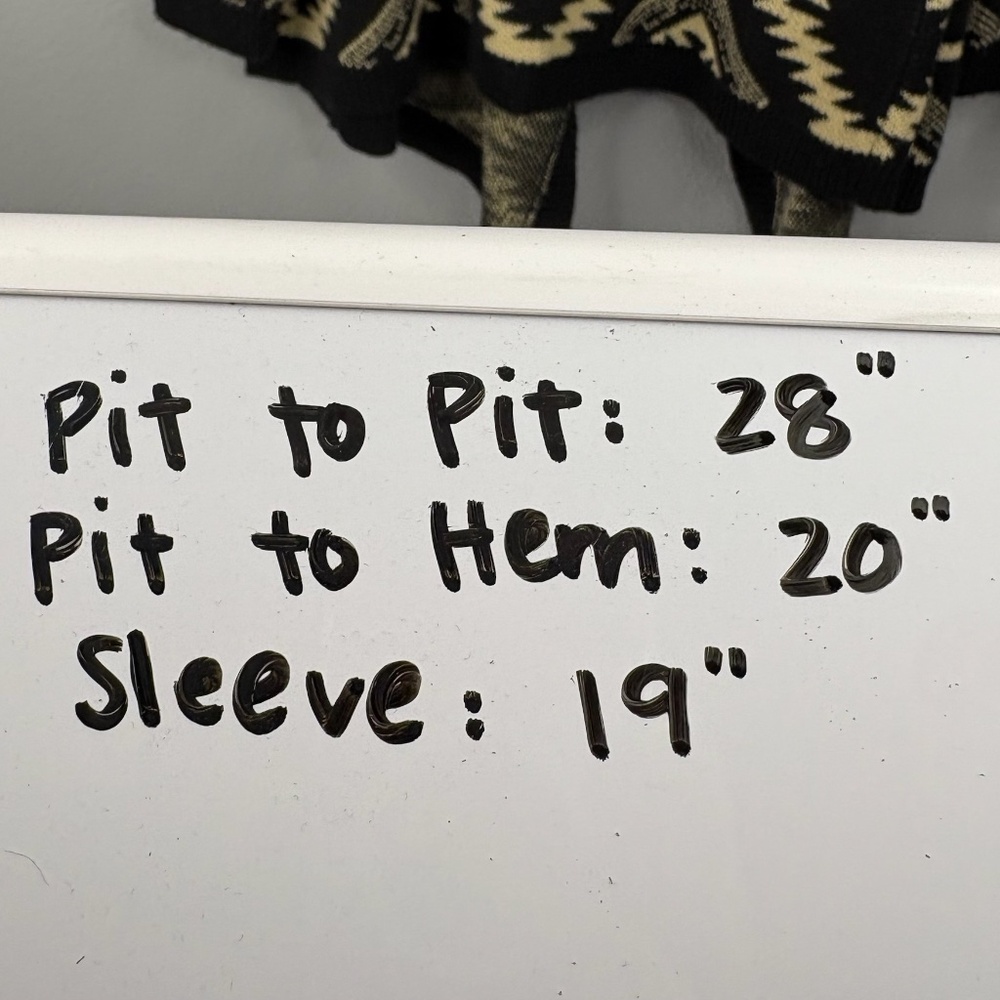 Pit to Pit: 28"
Pit to Hem: 20"
Sleeve: 19"